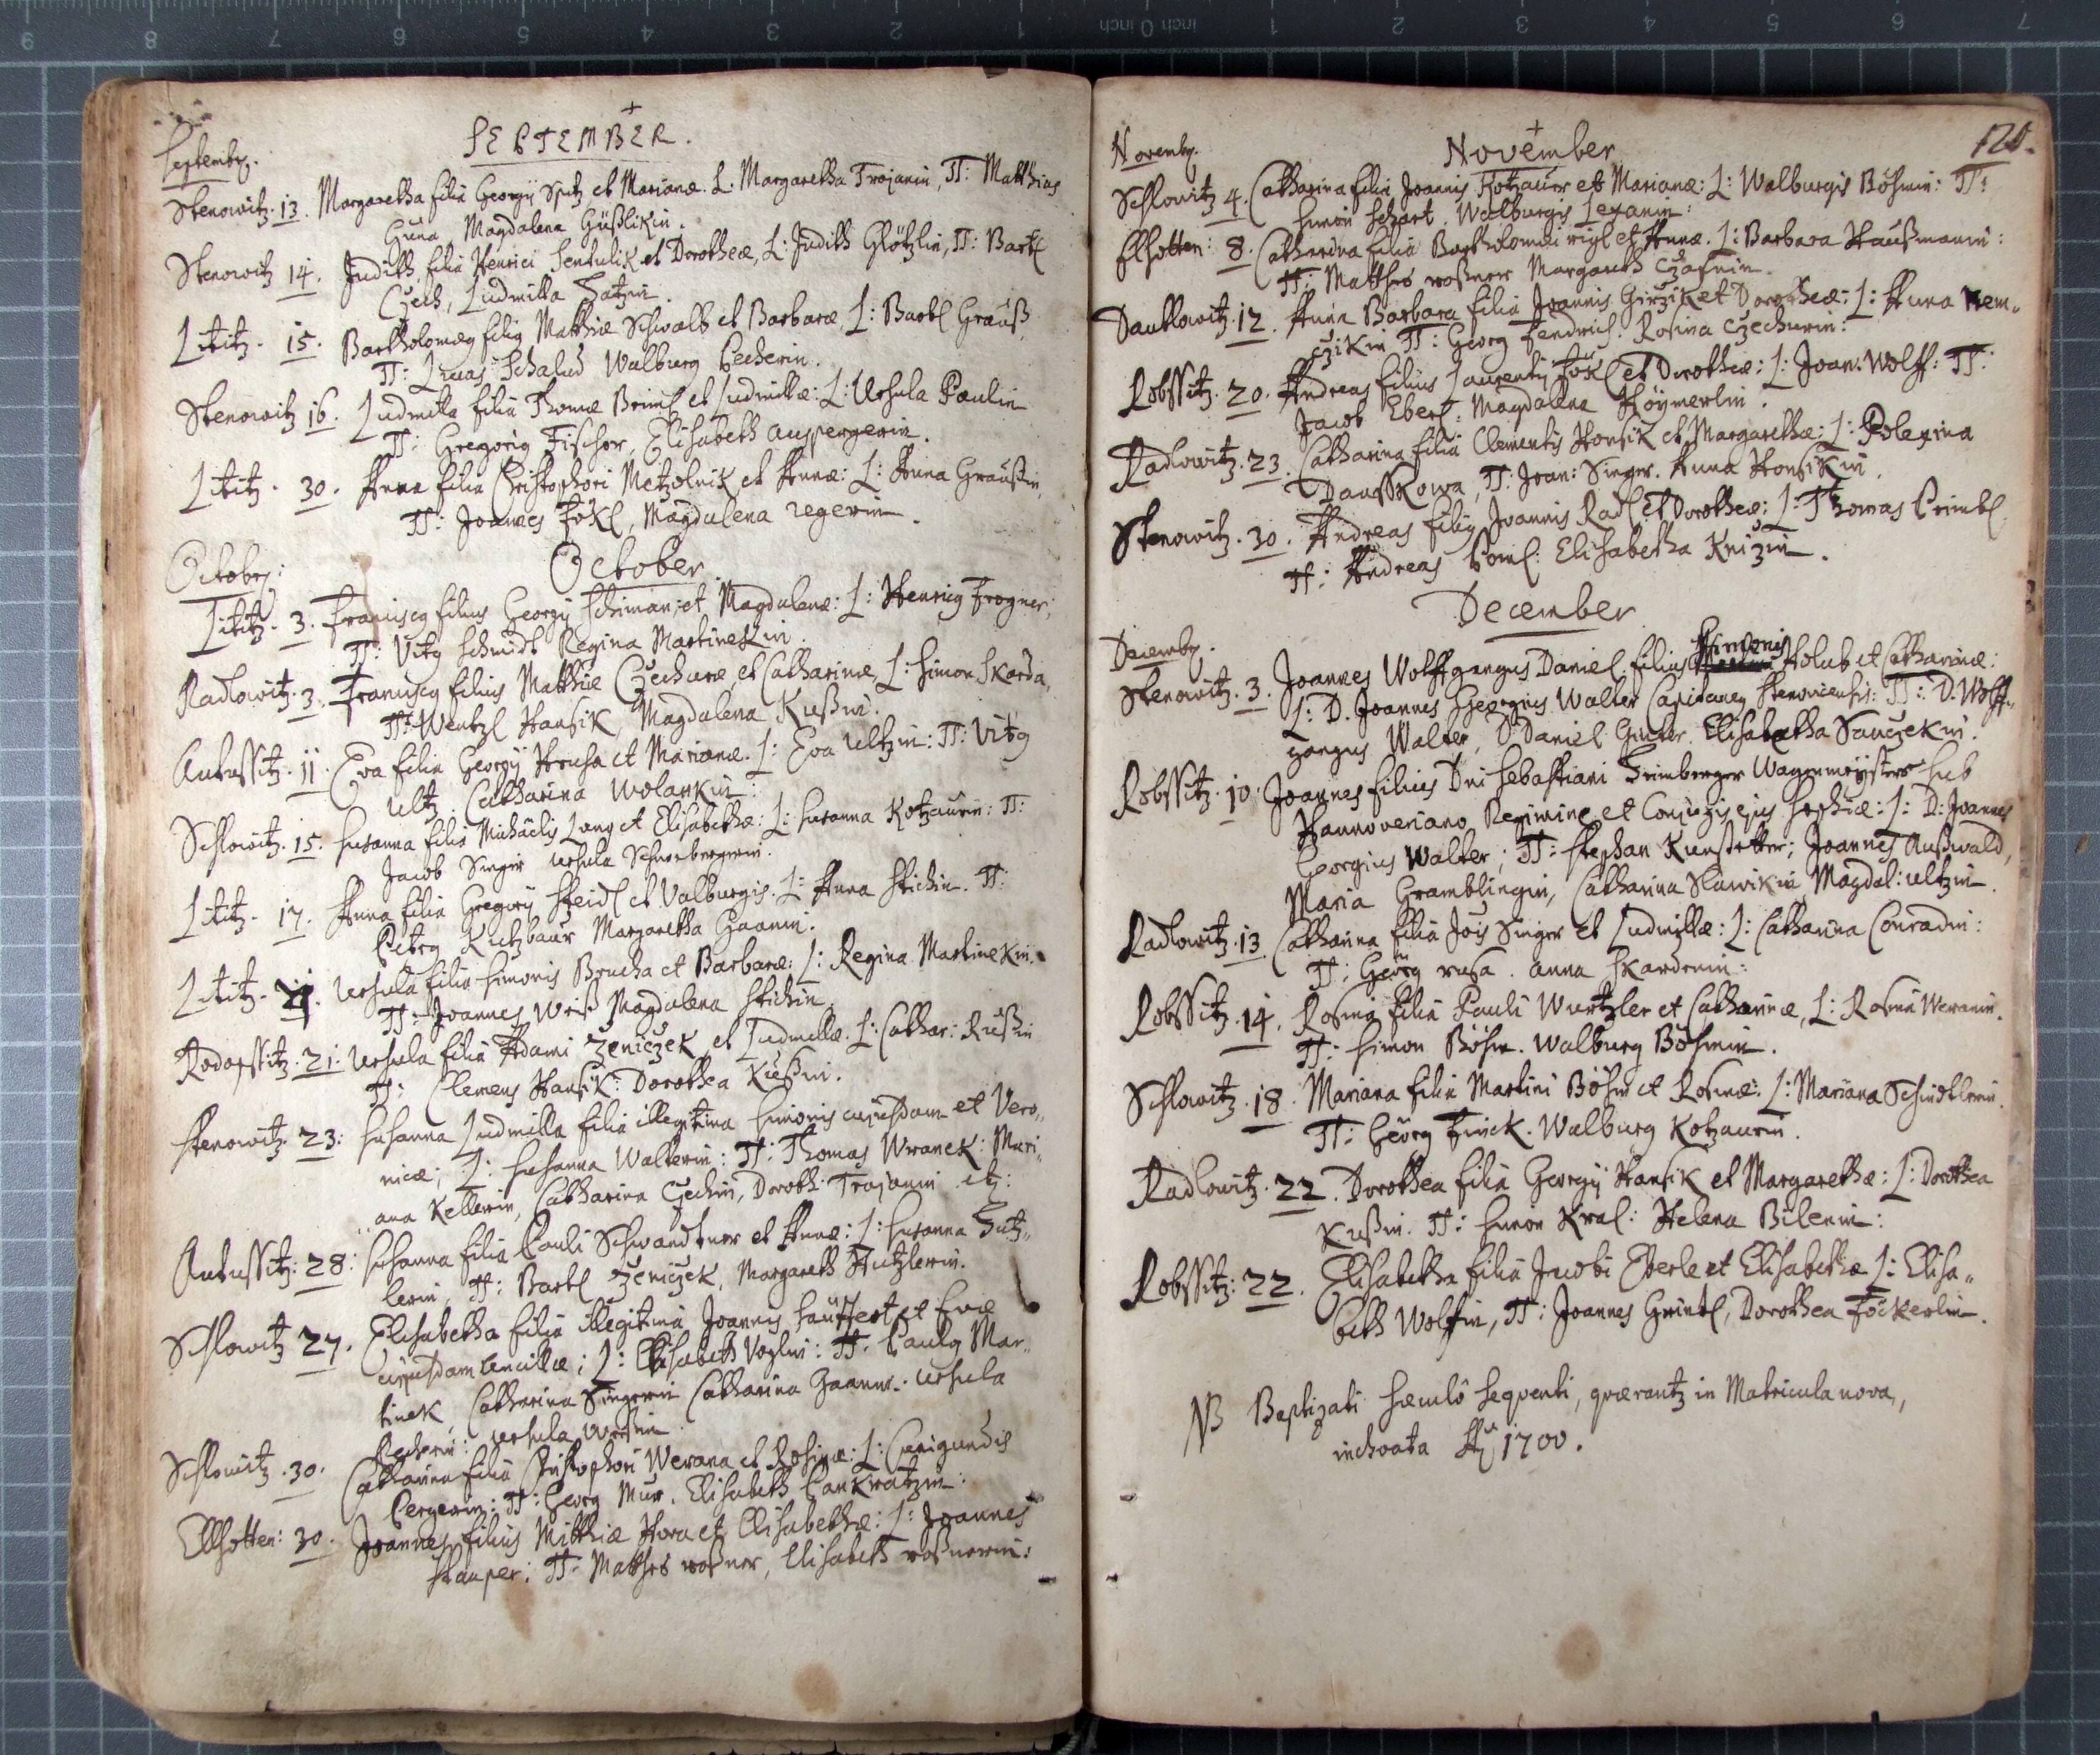 Septemb.
SEPTEMBER.
Stenowitz. 13. Margaretha filia Georgÿ Spitz et Marianæ. L: Margaretha Trojanin, TT: Matthias
Guna, Magdalena Güßlikin.
Stenowitz 14. Judith filia Henrici Sentulik et Dorotheæ, L: Judith Glötzlin, TT: Bartl
Czech, Ludmilla Satzin.
Lititz. 15. Bartholomæg filig Matthiæ Schwalb et Barbaræ, L: Bartl Grauß
TT: Lucas Schalud Walburg Pecherin.
Stenowitz 16. Ludmilla filia Thomæ Briml et Ludmillæ: L: Ursula Paulin
TT: Gregorig Fischer, Elisabeth auspergerin.
Lititz. 30. Anna filia Christophori Metzolnik et Annæ: L: Anna Graußin,
TT: Joannes Fökl, Magdalena regerin.
Octobr:
October
Lititz. 3. Francisg filius Georgÿ Schiman, et Magdalenæ: L: Henrig Frogner,
TT: Vitg Schmidt Regina Martinekin.
Radlowitz. 3. Francisg filius Matthiæ Czechuræ et Catharinæ, L: Simon Skarda,
TT: Wentzl Hansik, Magdalena Kußin.
Autussitz. 11. Eva filia Georgÿ Hruska et Marianæ. L: Eva Ultzin: TT: Vitg
Ultz. Catharina Wolankin:
Schlowitz. 15. Susanna filia Michaelis Lang et Elisabethæ: L: Susanna Kotzaurin: TT:
Jacob Singer Ursula Schneebergerin.
Lititz. 17. Anna filia Gregorÿ Steidl et Valburgis. L: Anna Stichin. TT:
Petrg Kutzbaur Margaretha Gaanin.
Lititz. 21. Ursula filia Simonis Brucha et Barbaræ: L: Regina Martinekin.
TT: Joannes Weiß Magdalena Stichin.
Dodopssitz. 21. Ursula filia Adami Zeniczek et Ludmillæ. L: Cathar: Rußin
TT: Clemens Hansik: Dorothea Kußin.
Stenowitz. 23: Susanna Ludmilla filia illegitima Simonis cujusdam et Vero,,
nicæ; L: Susanna Walterin: TT: Thomas Wranek: Mari,,
ana Kellerin, Catharina Czechin, Doroth: Trojanin etz:
Autussitz: 28: Susanna filia Pauli Schwandtner et Annæ: L: Susanna Hutz,,
lerin, TT: Bartl Zeniczek, Margareth Hutzlerin.
Schlowitz 27. Elisabetha filia illegitima Joannis et Evæ
cujusdam ancillæ; L: Elisabeth Voglin: TT: Paulg Mar,,
tinek, Catharina Singerin Catharina Gaanin.: Ursula
Pecherin: Ursula
Schlowitz. 30. Catharina filia Christophori Werana et Rosinæ: L: Cunigundis
Pergerin: TT: Georg Mur. Elisabeth Pankratzin:
Ellhotten: 30. Joannes filius Matthiæ Hora et Elisabethæ: L: Joannes
Stauper: TT: Matthes roßner, Elisabeth roßnerin:
120.
Novemb.
November
Schlowitz 4. Catharina filia Joannis Kotzaurr et Marianæ: L: Walburgis Böhmin: TT:
Simon Schart. Walburgis Lexanin:
Elhotten: 8. Catharina filia Bartholomæi rigl et Annæ. L: Barbara Haußmanin:
TT: Matthes roßner Margareth Czafnin.
Dautlowitz. 12. Anna Barbara filia Joannis Girzik et Dorotheæ: L: Anna Nem,,
czikin TT: Georg Fendrich. Rosina Czechurin:
Robssitz. 20. Andreas filius Laurentÿ Fökl et Dorotheæ: L: Joan: Wolff: TT:
Jacob Eberl: Magdalena Höÿmerlin.
Radlowitz. 23. Catharina filia Clementis Hansik et Margarethæ: L: Polexina
Danßkowa, TT: Joan: Singer. Anna Honsikin.
Stenowitz. 30. Andreas filig Joannis Radl et Dorotheæ: L: Thomas Primbl.
TT: Andreas Poml: Elisabetha Knizin.
December
Decemb.
Stenowitz. 3. Joannes Wolffgangus Daniel filius Simonis Holub et Catharinæ:
L: D. Joannes Georgius Walter Capitaneg Stenowicensis: TT: D. Wolff,,
gangus Walter, D. Daniel Gruber. Elisabetha Sauczekin.
Robssitz. 10. Joannes filius Dni Sebastiani Frimberger Wagenmeÿsters sub
Hannoveriano Regimine et Conjugis ejus Sophiæ: L: D: Joannes
Georgius Walter; TT: Stephan Kunstetter; Joannes Außwald,
Maria Gramblingin, Catharina Slawikin Magdal: Ultzin.
Radlowitz. 13 Catharina filia Jois Singer et Ludmillæ: L: Catharina Conradin:
TT: Georg rusa. anna Skardenin:
Robssitz. 14. Rosina filia Pauli Wurtzler et Catharinæ, L: Rosina Weranin.
TT: Simon Böhm. Walburg Böhmin.
Schlowitz. 18. Mariana filia Martini Böhm et Rosinæ: L: Mariana Schindtlerin.
TT: Georg Finck. Walburg Kotzaurin.
Radlowitz. 22. Dorothea filia Georgÿ Hansik et Margarethæ: L: Dorothea
Kußin. TT: Simon Kral: Helena Bilenin:
Robssitz: 22. Elisabetha filia Jacobi Eberle et Elisabethæ L: Elisa,,
beth Wolfin, TT: Joannes Grüntl, Dorothea Föckerlin.
NB Baptizati sæculo sequenti, quærantz in Matricula nova,,
inchoata Aō 1700.